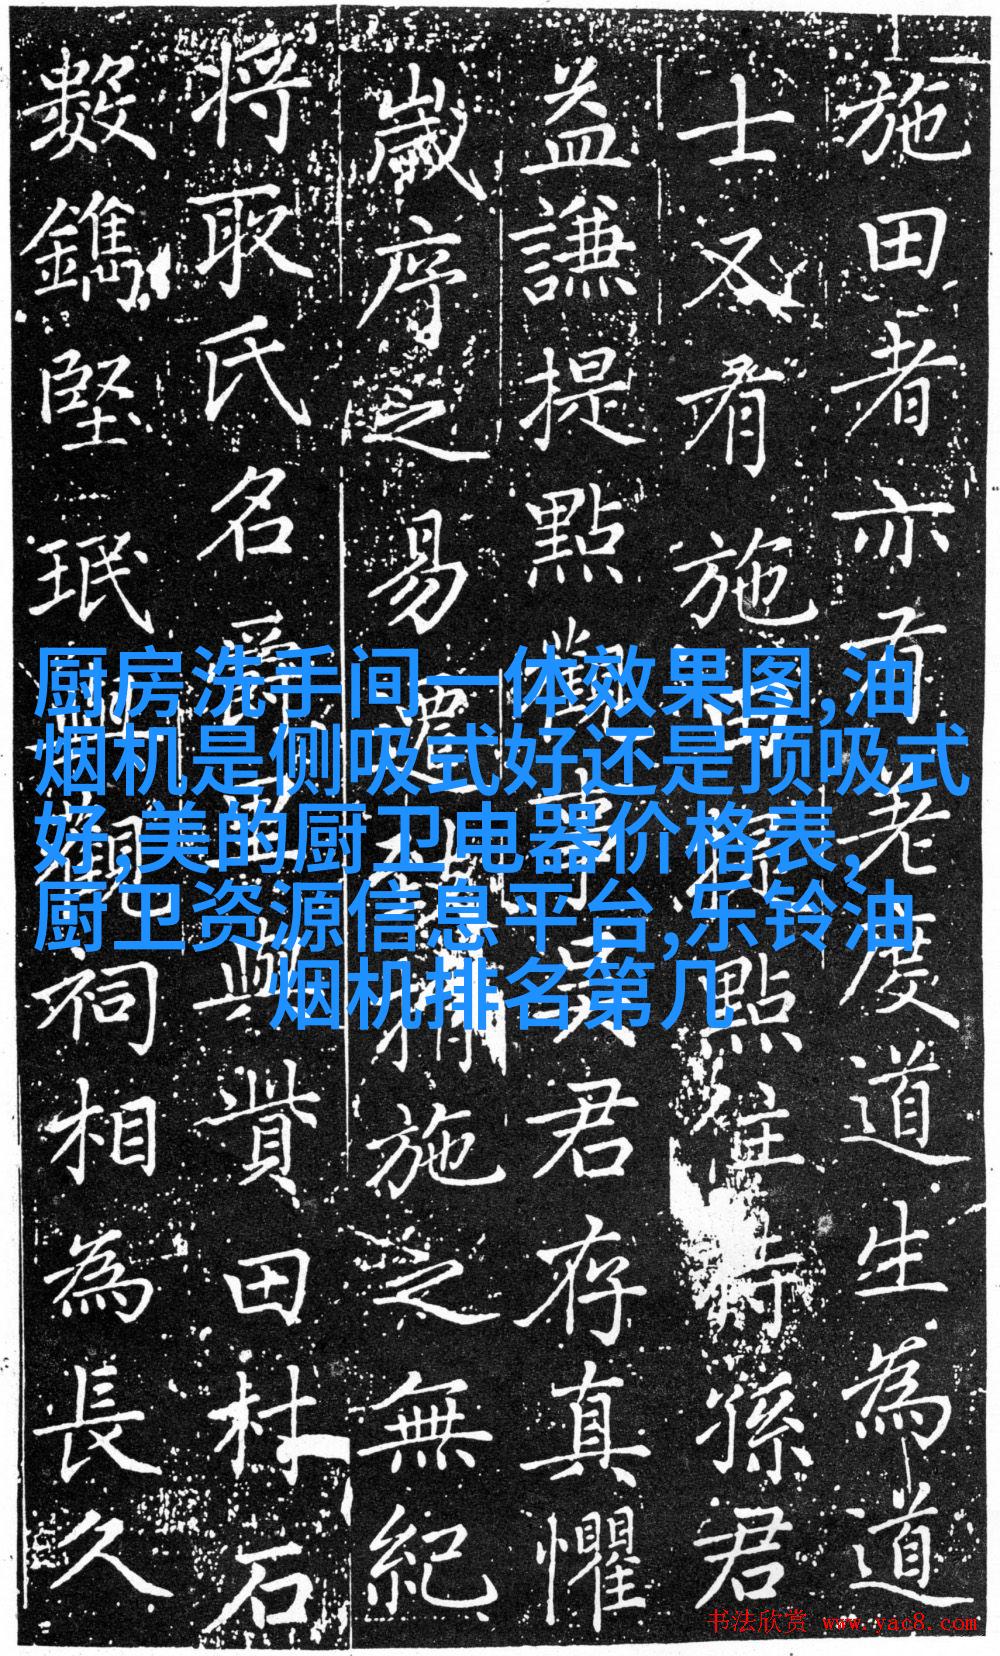 施田者亦有老度道生為道
士又有施
點住持孫君
益謙提點
君存真懼
嵗序之易
施之無紀
将取氏名
與貲田村石
数鐫堅珉
觀祠相為長久
厨房洗手间一体效果图,油
烟机是侧吸式好还是顶吸式
好,美的厨卫电器价格表,
厨卫资源信息平台,乐铃油
烟机排名第几
书法欣赏 www.yac8.com